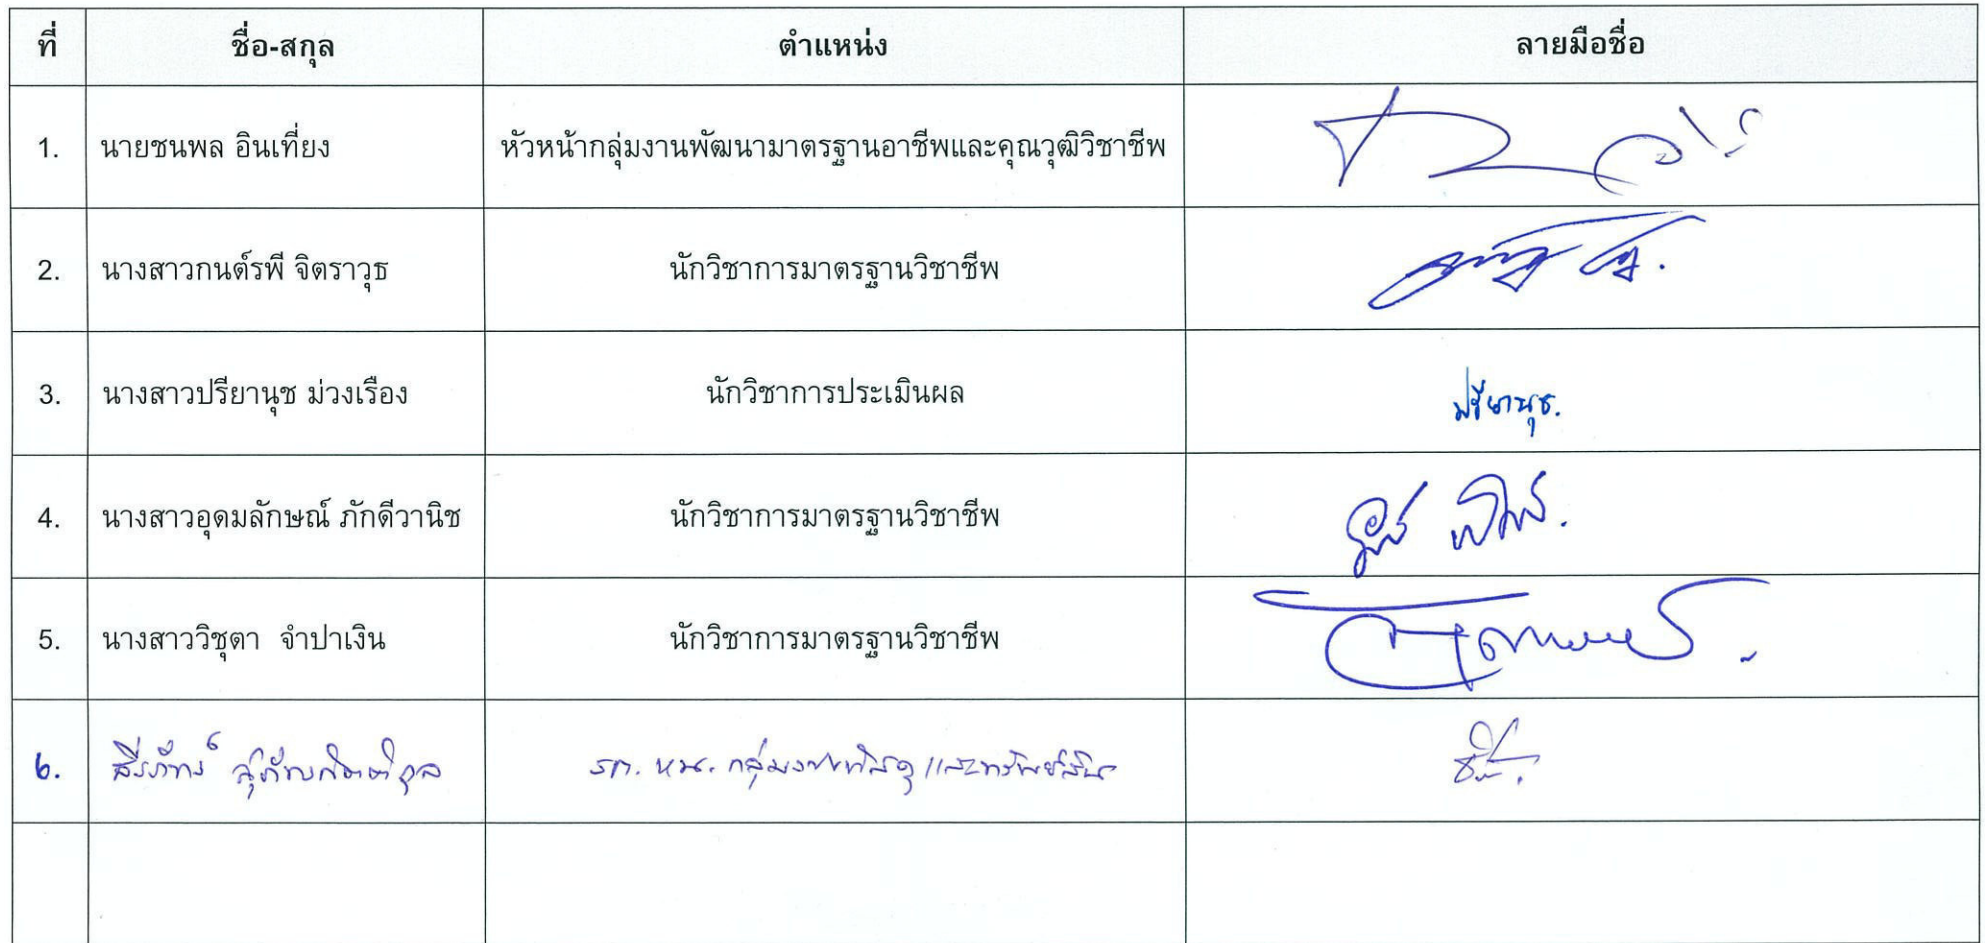 ที่ ชื่อ-สกุล ตำแหน่ง ลายมือชื่อ
1. นายชนพล อินเที่ยง หัวหน้ากลุ่มงานพัฒนามาตรฐานอาชีพและคุณวุฒิวิชาชีพ
2. นางสาวกนต์รพี จิตราวุธ นักวิชาการมาตรฐานวิชาชีพ
3. นางสาวปรียานุช ม่วงเรือง นักวิชาการประเมินผล ปรียานุช.
4. นางสาวอุดมลักษณ์ ภักดีวานิช นักวิชาการมาตรฐานวิชาชีพ
5. นางสาววิชุตา จำปาเงิน นักวิชาการมาตรฐานวิชาชีพ
6. รก. หน. กลุ่มงานพัสดุและทรัพย์สิน